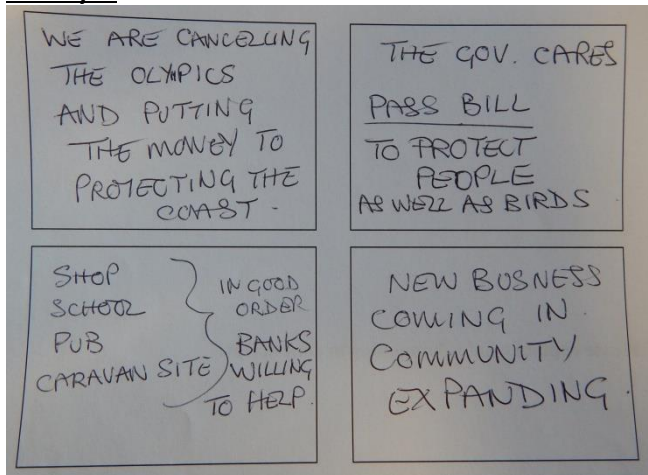 WE ARE CANCELLING
THE OLYMPICS
AND PUTTING
THE MONEY TO
PROTECTING THE
COAST.
THE GOV. CARES
PASS BILL
TO PROTECT
PEOPLE
AS WELL AS BIRDS
SHOP
SCHOOL
PUB
CARAVAN SITE
IN GOOD
ORDER
BANKS
WILLING
TO HELP.
NEW BUSNESS
COMING IN
COMMUNITY
EXPANDING.